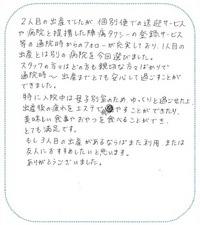 2人目の出産でしたが、個別便での送迎サービス
や病院と提携した陣痛タクシーの登録サービス
等の通院時からのフォローが充実しており、1人目の
出産とは別の病院を今回選びました。
スタッフの方々はどの方も親切な方々ばかりで
通院時〜出産までとても安心して過ごすことが
できました。
特に入院中は母子別室のため、ゆっくりと過ごせたよ
出産後の疲れをエステで癒やすことができたり、
美味しい食事やおやつを食べることができ、
とても満足です。
もし3人目の出産があるならばまた利用、または
友人におすすめしたいと思います。
ありがとうございました。